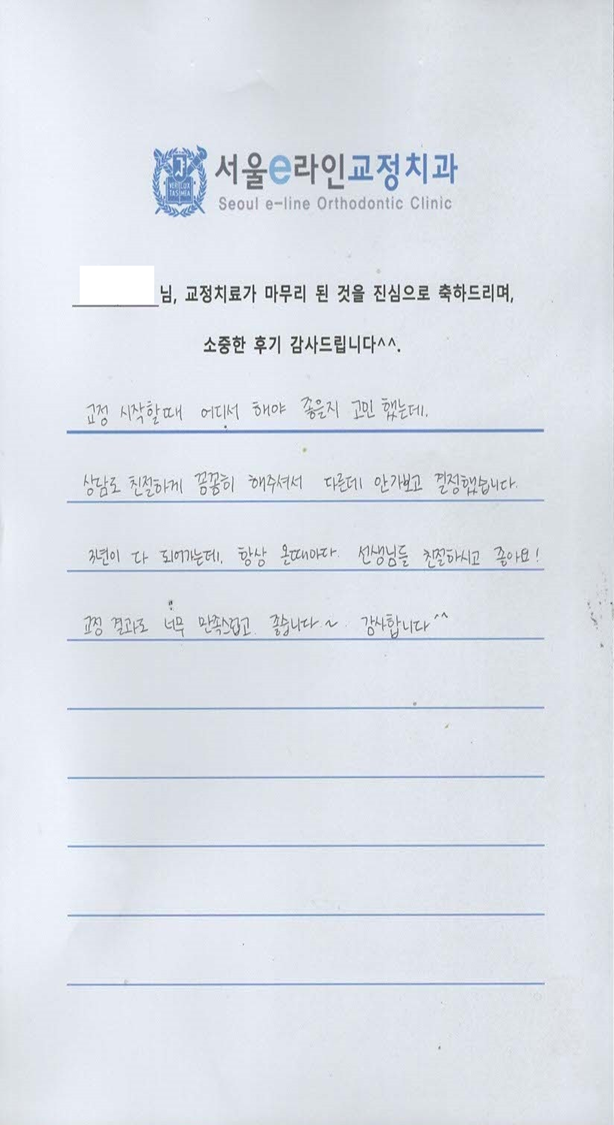 서울e라인교정치과
Seoul e-line Orthodontic Clinic
님, 교정치료가 마무리 된 것을 진심으로 축하드리며,
소중한 후기 감사드립니다^^.
교정 시작할때 어디서 해야 좋을지 고민 했는데.
상담도 친절하게 꼼꼼히 해주셔서 다른데 안가보고 결정했습니다.
3년이 다 되어가는데. 항상 올때마다. 선생님들 친절하시고 좋아요!
교정 결과도 너무 만족스럽고. 좋습니다~. 감사합니다^^